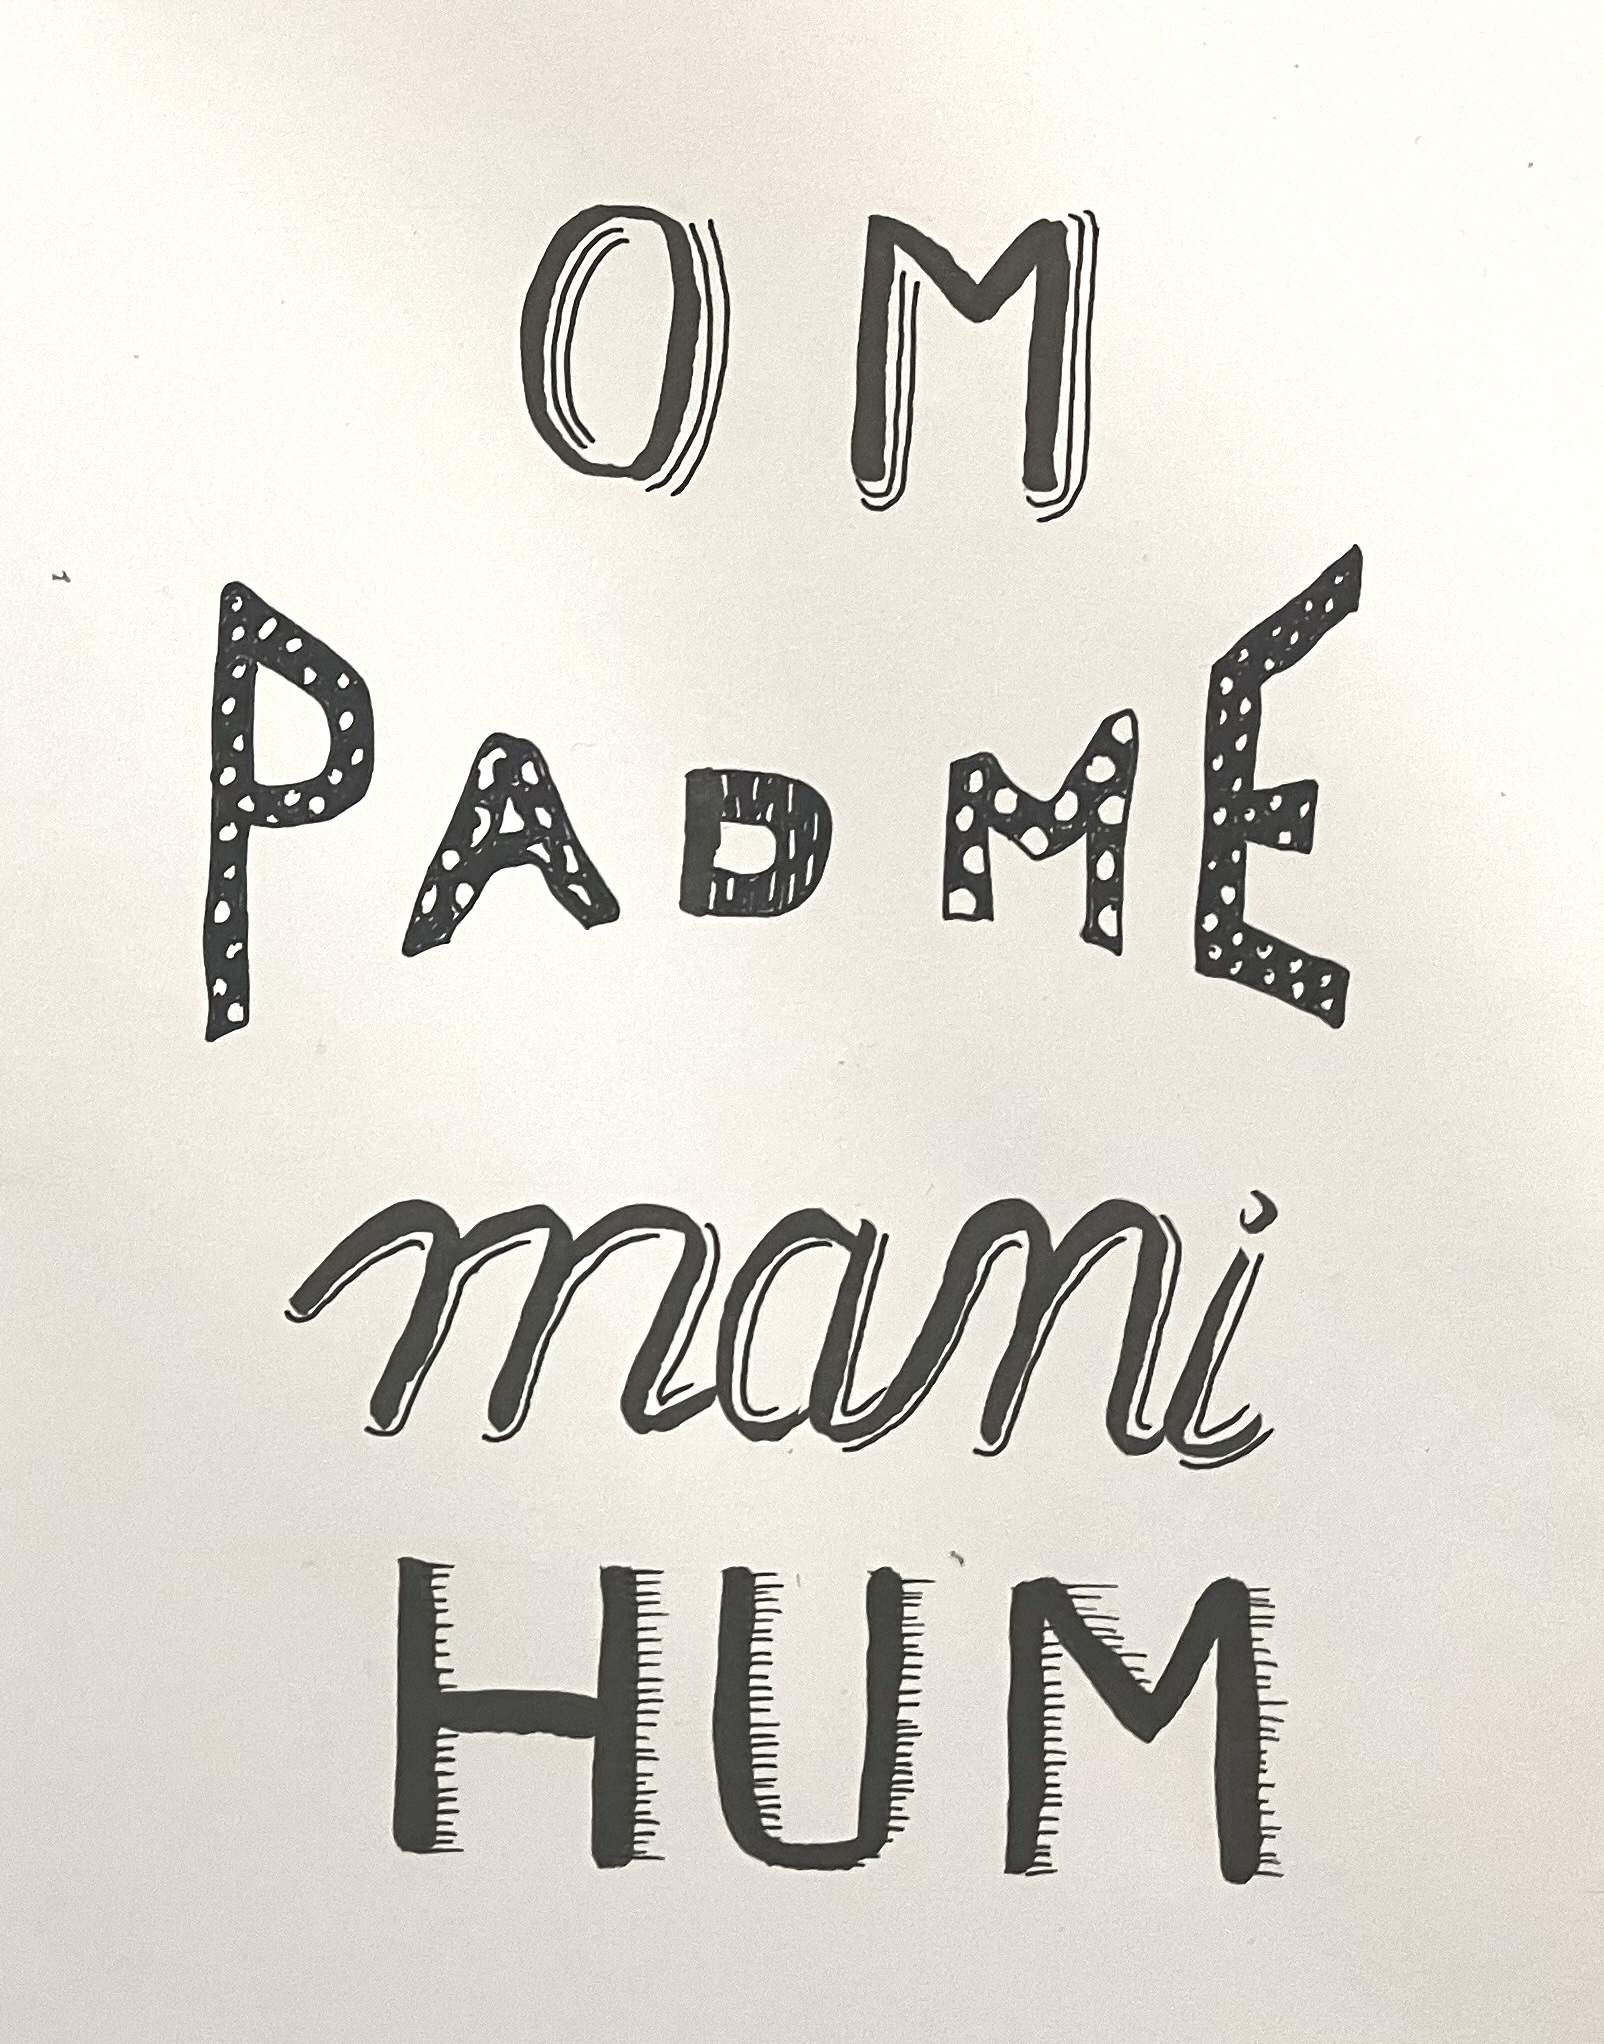 OM
PADME
mani
HUM